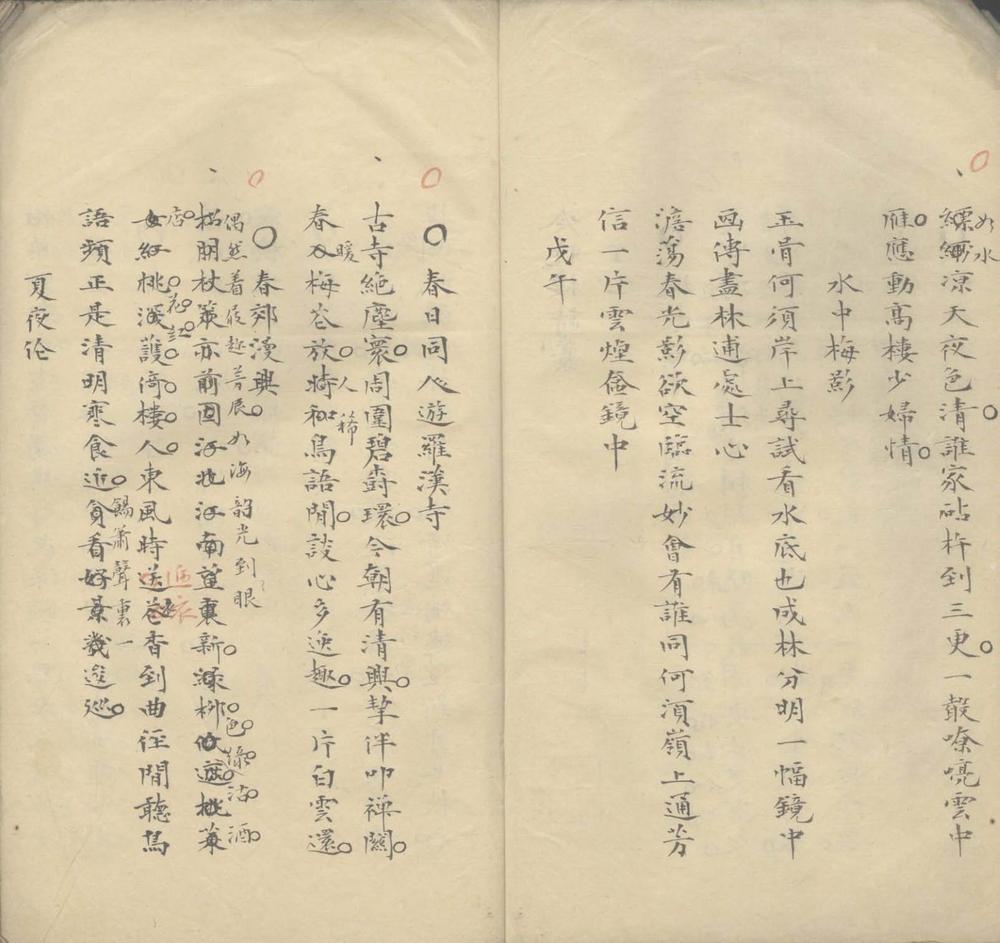 如水
縹緲凉天夜色清誰家砧杵到三更一聲嘹喨雲中
雁應動高樓少婦情
水中梅影
玉骨何須岸上尋試看水底也成林分明一幅鏡中
画傳盡林逋處士心
澹蕩春光影欲空臨流妙會有誰同何須嶺上通芳
信一片雲煙奩鏡中
戊午
春日同人遊羅漢寺
古寺絶塵寰周圍碧樹環今朝有清興挈伴叩禪關
春入梅花放將和鳥語閒談心多逸趣一片白雲還
暖人稀
春郊漫興
偶然着屐趁芳辰如海韶光到眼
携朋杖策亦前因河北河南望裏新緑柳
色緑沽酒
店花紅
紅桃護倚樓人東風時送花香到曲徑閒聽鳥
語頻正是清明寒食近貪看好景幾逡巡
錫簫聲裏一
夏夜